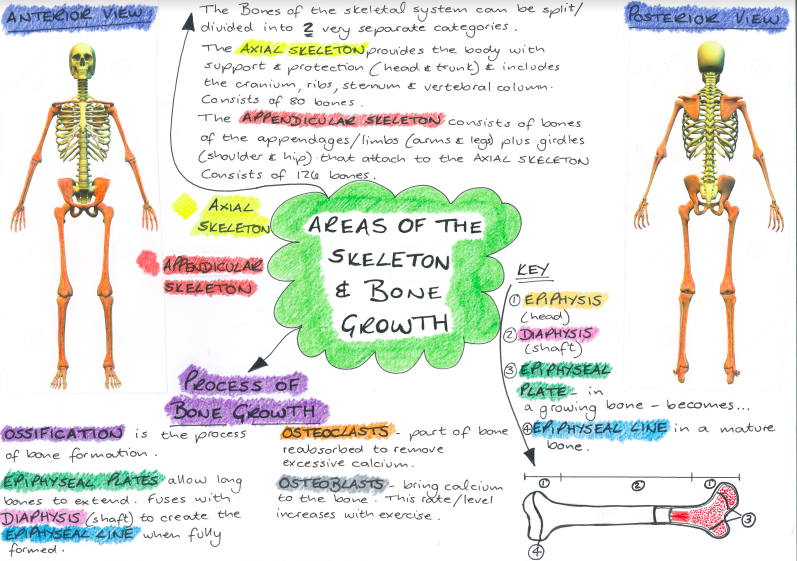 ANTERIOR VIEW
The Bones of the skeletal system can be split/
divided into 2 very separate categories.
The AXIAL SKELETON provides the body with
support & protection (head & trunk) & includes
the cranium, ribs, sternum & vertebral column.
Consists of 80 bones.
The APPENDICULAR SKELETON consists of bones
of the appendages/limbs (arms & legs) plus girdles
(shoulder & hip) that attach to the AXIAL SKELETON
Consists of 126 bones.
POSTERIOR VIEW
AXIAL
SKELETON
APPENDICULAR
SKELETON
AREAS OF THE
SKELETON
& BONE
GROWTH
KEY
① EPIPHYSIS
(head)
② DIAPHYSIS
(shaft)
③ EPIPHYSEAL
PLATE - in
a growing bone - becomes...
④ EPIPHYSEAL LINE in a mature
bone.
PROCESS OF
BONE GROWTH
OSSIFICATION is the process
of bone formation.
EPIPHYSEAL PLATES allow long
bones to extend. Fuses with
DIAPHYSIS (shaft) to create the
EPIPHYSEAL LINE when fully
formed.
OSTEOCLASTS - part of bone
reabsorbed to remove
excessive calcium.
OSTEOBLASTS - bring calcium
to the bone. This rate/level
increases with exercise.
① ② ①
③
④